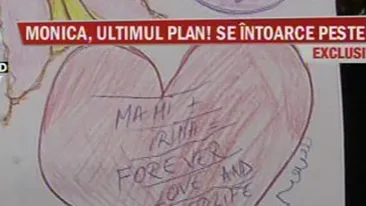 MONICA, ULTIMUL PLAN! SE ÎNTOARCE PESTE
EXCLUSI
D
MAMI +
IRINA =
FOREVER
LOVE AND
LIFE